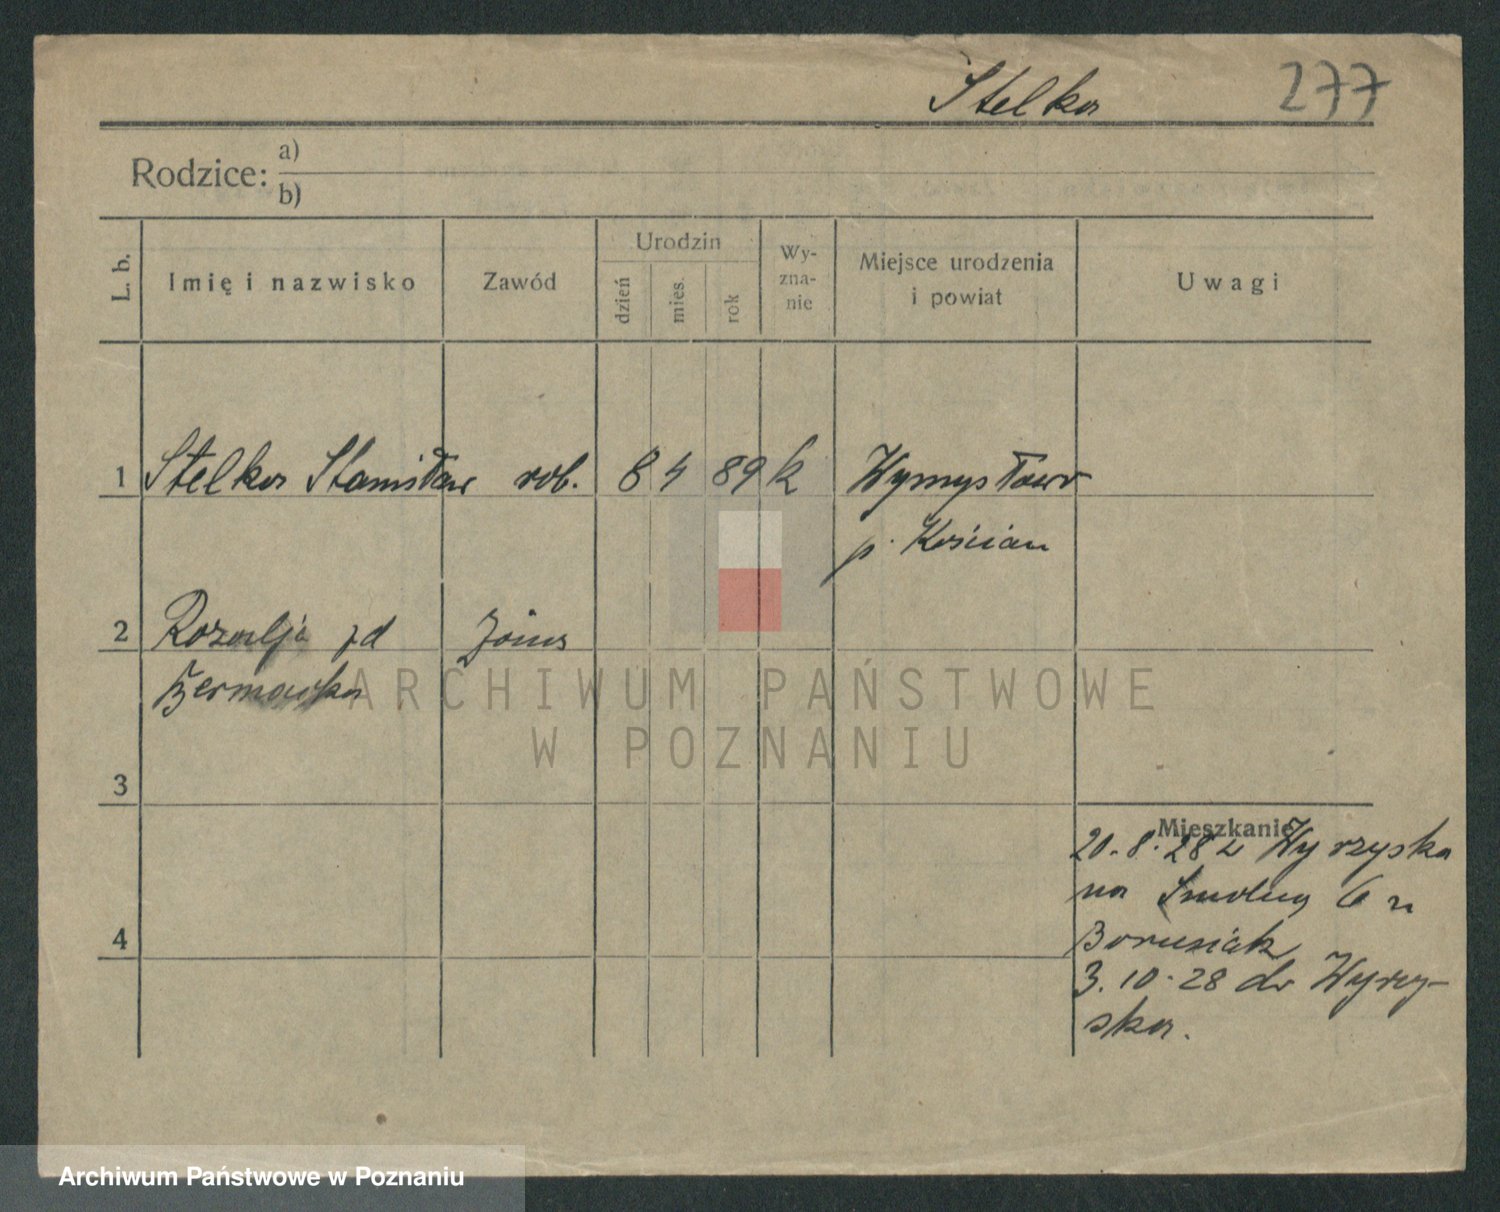 Stelka 277
Rodzice: a)
b)
L. b. Imię i nazwisko Zawód Urodzin dzień mies. rok Wy-zna-nie Miejsce urodzenia i powiat Uwagi
1 Stelka Stanisław rob. 8 4 89 k Wymysłowo
p. Kościan
2 Rozalja zd żona
ARCHIWUM PAŃSTWOWE
W POZNANIU
3
Mieszkanie
20.8.28 z Wyrzyska
na 6 u
4 Borusiak
3.10.28 do Wyrzy-
ska.
Archiwum Państwowe w Poznaniu